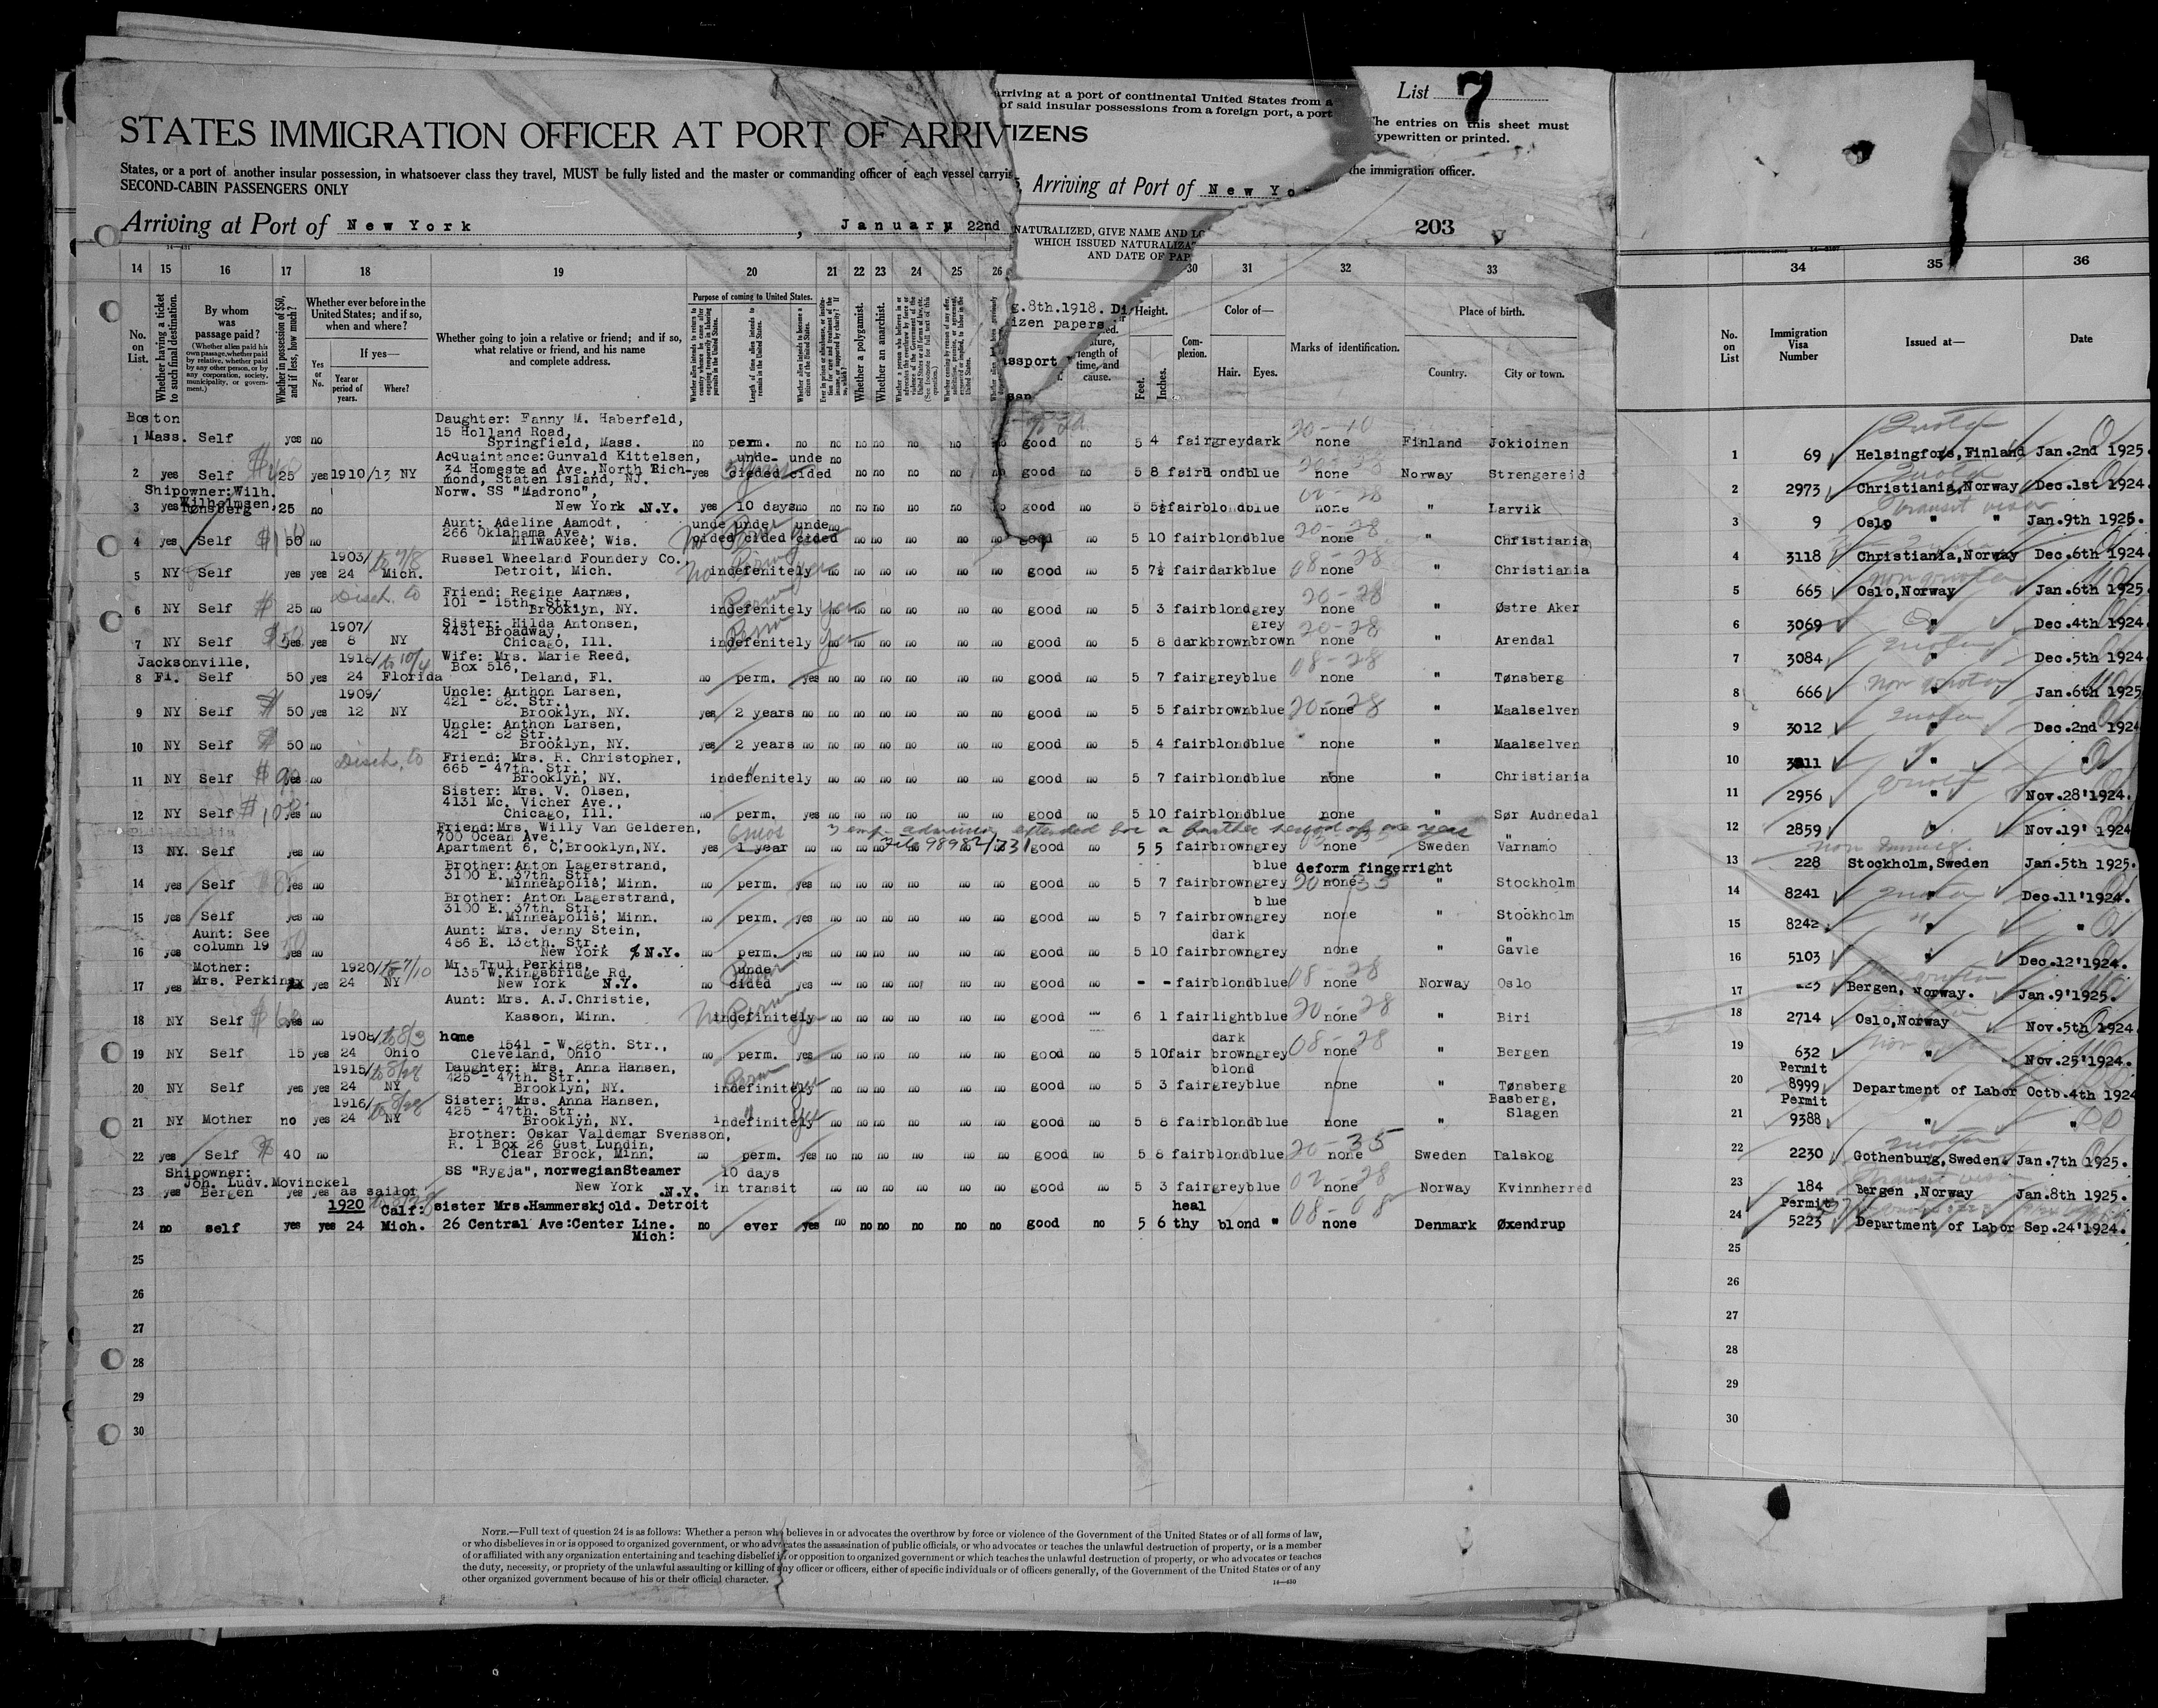 arriving at a port of continental United States from a
of said insular possessions from a foreign port, a port
List 7
The entries on this sheet must
typewritten or printed.
STATES IMMIGRATION OFFICER AT PORT OF ARRIV
TIZENS
States, or a port of another insular possession, in whatsoever class they travel, MUST be fully listed and the master or commanding officer of each vessel carryi
the immigration officer.
SECOND-CABIN PASSENGERS ONLY
Arriving at Port of New Yo
Arriving at Port of New York, January 22nd
203
NATURALIZED, GIVE NAME AND LO
WHICH ISSUED NATURALIZA
AND DATE OF PAP
14 15 16 17 18 19 20 21 22 23 24 25 26 30 31 32 33 34 35 36
No. on List.
Whether having a ticket to such final destination.
By whom was passage paid?
(Whether alien paid his own passage, whether paid by relative, whether paid by any other person, or by any corporation, society, municipality, or government.)
Whether in possession of $50, and if less, how much?
Whether ever before in the United States; and if so, when and where?
Yes or No.
If yes—
Year or period of years.
Where?
Whether going to join a relative or friend; and if so, what relative or friend, and his name and complete address.
Purpose of coming to United States.
Length of time alien intends to remain in the United States.
Whether a polygamist.
Whether an anarchist.
g.8th.1918. Di
izen papers
Height.
Feet.
Inches.
Complexion.
Color of—
Hair. Eyes.
Marks of identification.
Place of birth.
Country. City or town.
No. on List
Immigration Visa Number
Issued at—
Date
Boston Daughter: Fanny M. Haberfeld,
15 Holland Road,
1 Mass. Self yes no Springfield, Mass. no perm. no no no no no no no good no 5 4 fair grey dark none Finland Jokioinen
1 69 Helsingfors, Finland Jan.2nd 1925.
Acquaintance: Gunvald Kittelsen, unde- unde no
2 yes Self 25 yes 1910/13 NY 34 Homestead Ave., North Rich- yes cieded cided no no no no no good no 5 8 fair blond blue none Norway Strengereid
mond, Staten Island, NJ.
2 2973 Christiania, Norway Dec.1st 1924.
Shipowner: Wilh. Norw. SS "Madrono",
Wilhelmsen,
3 yes Tønsberg 25 no New York .N.Y. yes 10 days no no no no no no no good no 5 5½ fair blond blue none " Larvik
3 9 Oslo " " Jan.9th 1925.
Aunt: Adeline Aamodt, unde unde unde no
266 Oklahama Ave.,
4 yes Self 50 no Milwaukee, Wis. cided cided cided no no no no no good no 5 10 fair blond blue none " Christiania
4 3118 Christiania, Norway Dec.6th 1924.
1903/ Russel Wheeland Foundery Co.,
5 NY Self yes yes 24 Mich. Detroit, Mich. indefenitely no no no no no no good no 5 7½ fair dark blue none " Christiania
5 665 Oslo, Norway Jan.6th 1925.
Friend: Regine Aarnæs,
101 - 15th. Str.,
6 NY Self 25 no Brooklyn, NY. indefenitely no no no no no no good no 5 3 fair blond grey none " Østre Aker
6 3069 " Dec.4th 1924.
1907/ Sister: Hilda Antonsen, grey
4431 Broadway,
7 NY Self yes yes 8 NY Chicago, Ill. indefenitely no no no no no no good no 5 8 dark brown brown none " Arendal
7 3084 " Dec.5th 1924
Jacksonville, Wife: Mrs. Marie Reed,
Box 516,
8 Fl. Self 50 yes 24 Florida Deland, Fl. no perm. yes no no no no no no good no 5 7 fair grey blue none " Tønsberg
8 666 " Jan.6th 1925
1909/ Uncle: Anthon Larsen,
421 - 82. Str.,
9 NY Self 50 yes 12 NY Brooklyn, NY. yes 2 years no no no no no no no good no 5 5 fair brown blue none " Maalselven
9 3012 " Dec.2nd 1924
Uncle: Anthon Larsen,
421 - 82 Str.,
10 NY Self 50 no Brooklyn, NY. yes 2 years no no no no no no no good no 5 4 fair blond blue none " Maalselven
10 3011 " "
Friend: Mrs. R. Christopher,
665 - 47th. Str.,
11 NY Self yes no Brooklyn, NY. indefenitely no no no no no no good no 5 7 fair blond blue none " Christiania
11 2956 " Nov.28'1924.
Sister: Mrs. V. Olsen,
4131 Mc. Vicher Ave.,
12 NY Self yes no Chicago, Ill. no perm. yes no no no no no no good no 5 10 fair blond blue none " Sør Audnedal
12 2859 " Nov.19' 1924
Friend: Mrs. Willy Van Gelderen, 6 mos Temp. admission extended for a further period of one year
700 Ocean Ave.,
13 NY. Self yes no Apartment 6, C, Brooklyn, NY. yes 1 year no no no no File 98982/731 no no good no 5 5 fair brown grey none Sweden Värnamo
13 228 Stockholm, Sweden Jan.5th 1925.
Brother: Anton Lagerstrand, blue deform fingerright
3100 E. 37th. Str.,
14 yes Self yes no Minneapolis, Minn. no perm. yes no no no no no no good no 5 7 fair brown grey none " Stockholm
14 8241 " Dec.11'1924.
Brother: Anton Lagerstrand, blue
3100 E. 37th. Str.,
15 yes Self yes no Minneapolis, Minn. no perm. yes no no no no no no good no 5 7 fair brown grey none " Stockholm
15 8242 " "
Aunt: See Aunt: Mrs. Jenny Stein, dark
column 19 486 E. 138th. Str.,
16 yes yes no New York % N.Y. no perm. yes no no no no no no good no 5 10 fair brown grey none " Gävle
16 5103 " Dec.12'1924.
Mother: 1920/ to 7/10 Mr. Trul Perkins, unde
Mrs. Perkins 135 W.Kingsbridge Rd.
17 yes yes 24 NY New York N.Y. no cided yes no no no no no no good no - - fair blond blue none Norway Oslo
17 Bergen, Norway. Jan.9'1925.
Aunt: Mrs. A.J.Christie,
18 NY Self yes no Kasson, Minn. indefinitely no no no no no no good no 6 1 fair light blue none " Biri
18 2714 Oslo, Norway Nov.5th 1924
1908/ to 8/3 home dark
1541 - W.28th. Str.,
19 NY Self 15 yes 24 Ohio Cleveland, Ohio no perm. yes no no no no no no good no 5 10 fair brown grey none " Bergen
19 632 " Nov.25'1924.
1915/ Daughter: Mrs. Anna Hansen, blond
425 - 47th. Str.,
20 NY Self yes yes 24 NY Brooklyn, NY. indefinitely no no no no no no good no 5 3 fair grey blue none " Tønsberg
Permit
20 8999 Department of Labor Octb.4th 1924
1916/ Sister: Mrs. Anna Hansen, Basberg,
425 - 47th. Str., Slagen
21 NY Mother no yes 24 NY Brooklyn, NY. indefinitely no no no no no no good no 5 8 fair blond blue none "
Permit
21 9388 " "
Brother: Oskar Valdemar Svensson,
R. 1 Box 26 Gust Lundin,
22 yes Self 40 no Clear Brock, Minn. no perm. yes no no no no no no good no 5 8 fair blond blue none Sweden Dalskog
22 2230 Gothenburg, Sweden. Jan.7th 1925.
Shipowner: SS "Rygja", norwegianSteamer 10 days
Joh. Ludv.Movinckel
23 yes Bergen yes yes as sailor New York .N.Y. in transit no no no no no no good no 5 3 fair grey blue none Norway Kvinnherred
23 184 Bergen, Norway Jan.8th 1925.
1920 Calf: sister Mrs.Hammerskjold. Detroit heal
24 no self yes yes 24 Mich. 26 Central Ave:Center Line. no ever yes no no no no no no good no 5 6 thy blond " none Denmark Øxendrup
Mich:
Permit
24 5223 Department of Labor Sep.24'1924.
25 25
26 26
27 27
28 28
29 29
30 30
NOTE.—Full text of question 24 is as follows: Whether a person who believes in or advocates the overthrow by force or violence of the Government of the United States or of all forms of law,
or who disbelieves in or is opposed to organized government, or who advocates the assassination of public officials, or who advocates or teaches the unlawful destruction of property, or is a member
of or affiliated with any organization entertaining and teaching disbelief in or opposition to organized government or which teaches the unlawful destruction of property, or who advocates or teaches
the duty, necessity, or propriety of the unlawful assaulting or killing of any officer or officers, either of specific individuals or of officers generally, of the Government of the United States or of any
other organized government because of his or their official character.